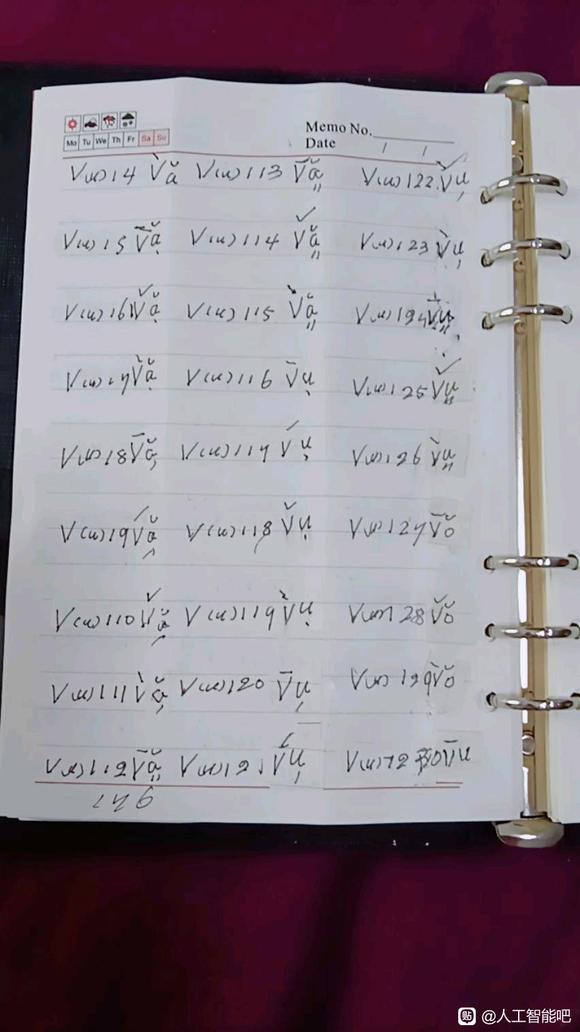 Mo Tu We Th Fr Sa Su
Memo No.
Date / /
V(u)14 V̀ă V(u)113 V̄ă̤ V(u)122 V̌ụ
V(u)15 V̄ặ V(u)114 V̌ă̤ V(u)123 V̀ụ
V(u)115 V̀ă̤
V(u)17 V̀ặ V(u)116 V̄ụ V(u)125 V̌ṳ
V(u)18 V̄ặ V(u)117 V́ụ V(u)126 V̀ṳ
V(u)19 V́ặ V(u)118 V̌ụ V(u)127 V̄ŏ
V(u)110 V̌ặ V(u)119 V̀ụ V(u)128 V̌ŏ
V(u)111 V̀ặ V(u)120 V̄ụ V(u)129 V̀ŏ
V(u)112 V̄ă̤ V(u)121 V́ụ
贴 @人工智能吧